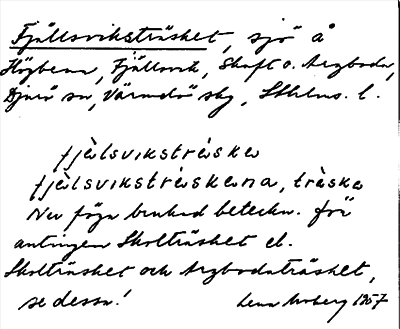 Fjällsviksträsket, sjö å
Högbena, Fjällsvik, Skaft o. Arzboda,
Djurö sn, Värmdö skg, Sthlms. l.
fjèlsvikstrèske
fjèlsvikstrèskena, trèske
Nu föga brukad beteckn. för
antingen Skolträsket el.
Skolträsket och Arzbodaträsket,
se dessa!
Lena Moberg 1957